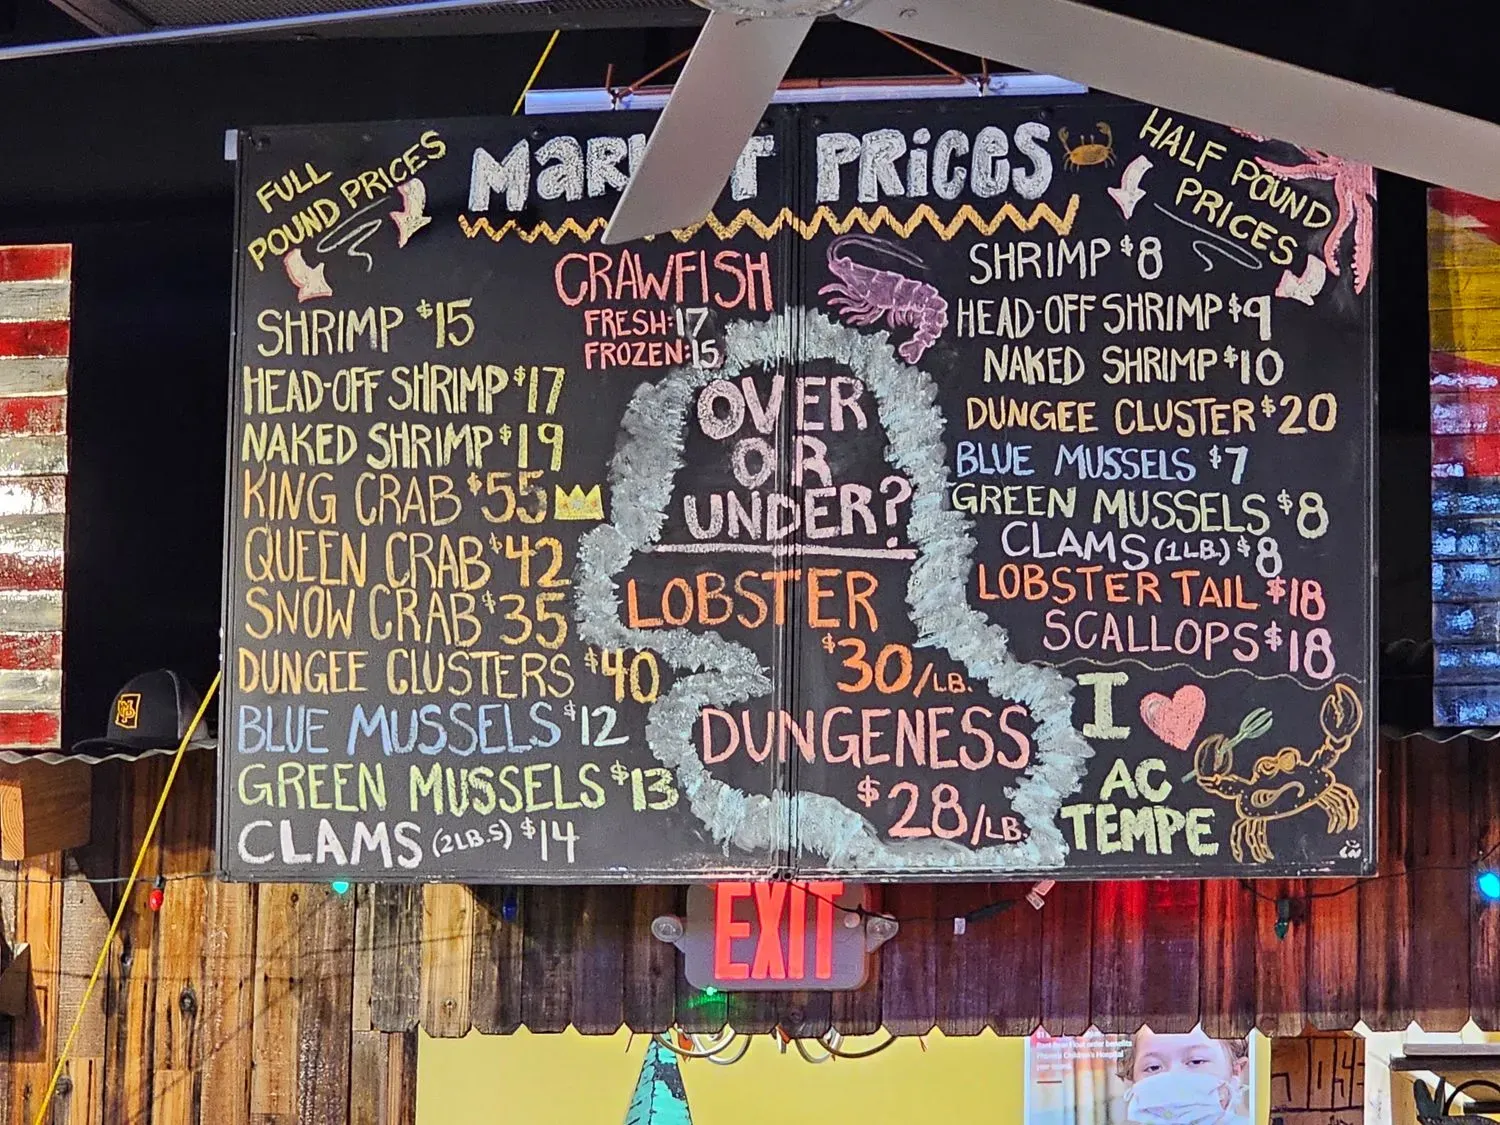 MARKET PRICES
FULL
POUND PRICES
SHRIMP $15
HEAD-OFF SHRIMP $17
NAKED SHRIMP $19
KING CRAB $55
QUEEN CRAB $42
SNOW CRAB $35
DUNGEE CLUSTERS $40
BLUE MUSSELS $12
GREEN MUSSELS $13
CLAMS (2LB.S) $14
CRAWFISH
FRESH: 17
FROZEN: 15
OVER
OR
UNDER?
LOBSTER
$30/LB.
DUNGENESS
$28/LB.
HALF POUND
PRICES
SHRIMP $8
HEAD-OFF SHRIMP $9
NAKED SHRIMP $10
DUNGEE CLUSTER $20
BLUE MUSSELS $7
GREEN MUSSELS $8
CLAMS (1LB.) $8
LOBSTER TAIL $18
SCALLOPS $18
I
AC
TEMPE
EXIT
Phoenix Children's Hospital